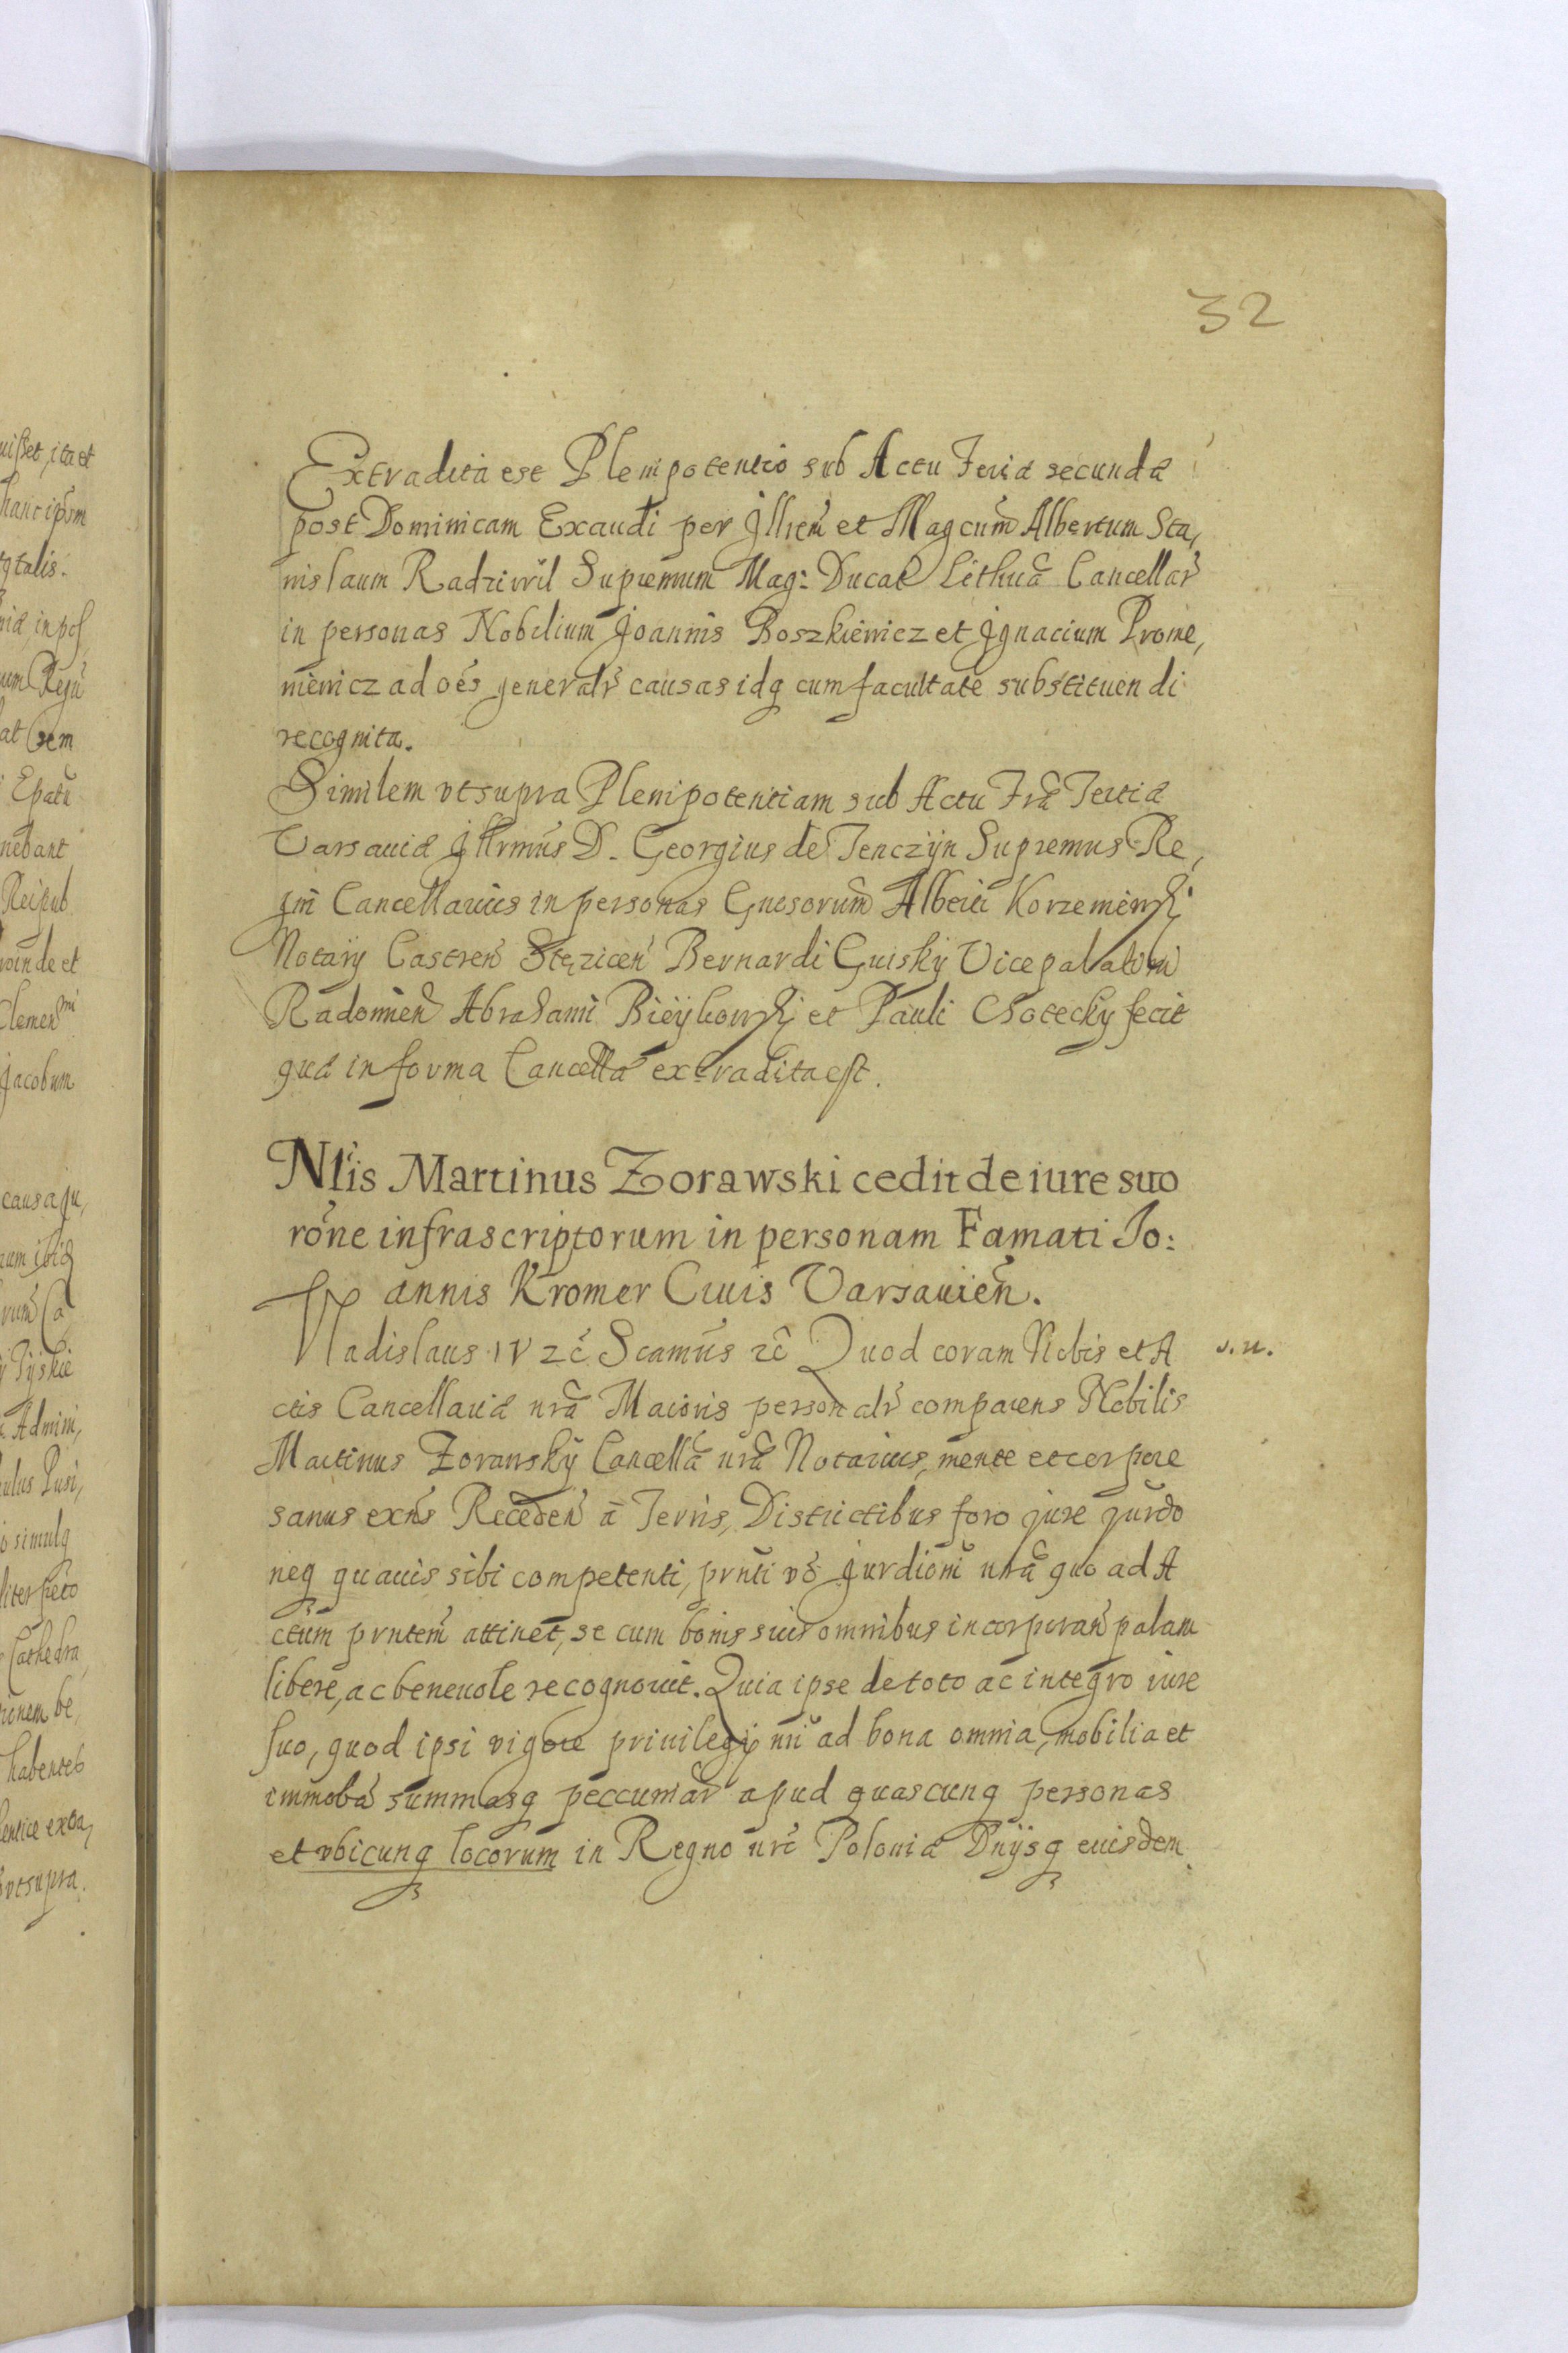 32
Extradita est Plenipotentio sub Actu Feria secunda
post Dominicam Exaudi per Jllrem et Magcum Albertum Sta,
nislaum Radziwil Supremum Mag: Ducat Lithua Cancellar
in personas Nobilium Joannis Boszkiewicz et Jgnacium Prome,
niewicz ad oes generalr causas idq cum facultate substituendi
recognita.
Similem vt supra Plenipotentiam sub Actu Fra Tertia
Varsauia Jllrmus D. Georgius de Tenczyn Supremus Re,
gni Cancellarius in personas Gnesorum Alberti Korzeniewski
Notarÿ Castren Stęzicen Bernardi Guiskÿ Vicepalatini
Radomien Abrahami Bieÿkowski et Pauli Chotecky fecit
qua in forma Cancella extradita est.
Nlis Martinus Zorawski cedit de iure suo
rone infrascriptorum in personam Famati Jo:
annis Kromer Ciuis Varsauien.
Vladislaus IV zc Scamus zc Quod coram Nobis et A s. n.
ctis Cancellaria nra Maioris personalr comparens Nobilis
Martinus Zorawskÿ Cancella nra Notarius, mente et corpore
sanus exns Receden a Terris, Districtibus foro jure jurdo
neq quauis sibi competenti, prnti vo jurdioni nra quo ad A
ctum prntem attinet, se cum bonis suis omnibus incorporan palam
libere, ac beneuole recognouit. Quia ipse de toto ac integro iure
suo, quod ipsi vigore priuilegÿ nri ad bona omnia, mobilia et
immoba summasq peccuniar apud quascunq personas
et vbicunq locorum in Regno nro Polonia Dnÿsq eiusdem